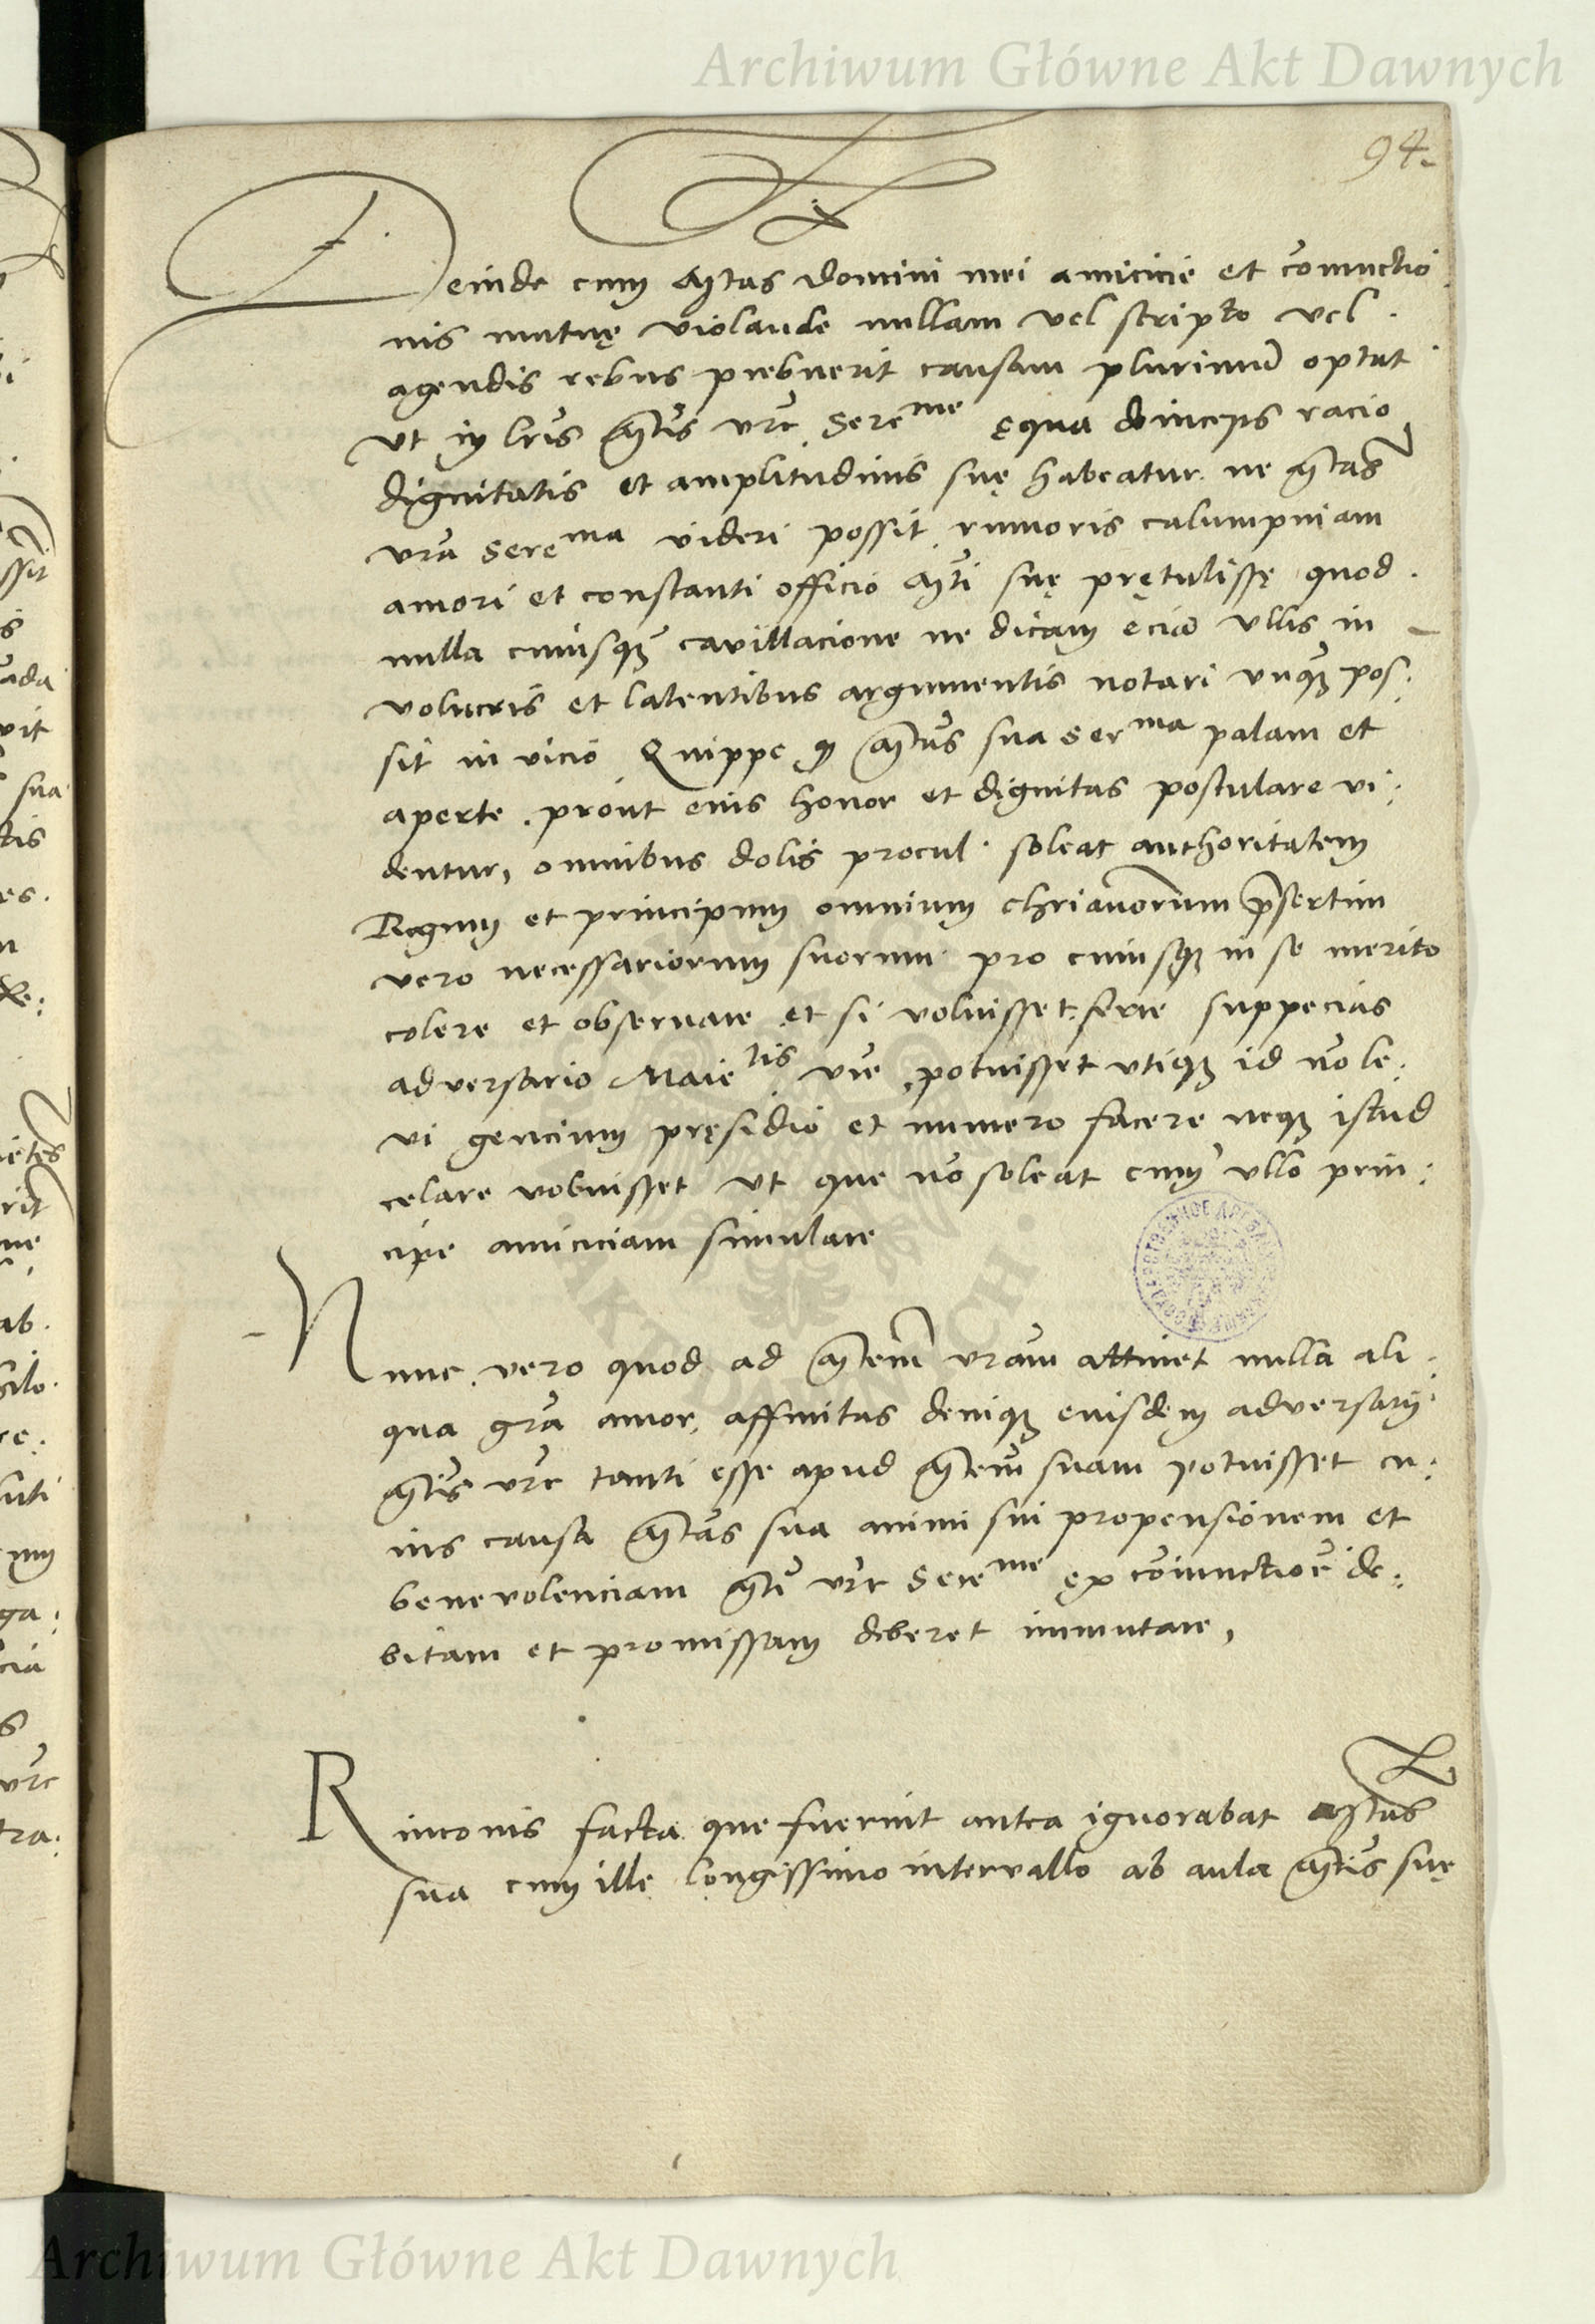 Archiwum Główne Akt Dawnych
94.
Deinde cum M̃tas domini mei amicicie et coniunctio
nis mutuę violande nullam vel scripto vel
agendis rebus prebuerit causam plurimũ optat
Ut in lr̃is M̃tis vr̃e Sereme ęqua deinceps racio
dignitatis et amplitudinis suę habeatur. ne M̃tas
vr̃a Serema videri possit rumoris calumpniam
amori et constanti officio M̃ti suę prętulissę quod
nulla cuiusqꝫ cavillacione ne dicam eciã ullis in
volucris et latentibus argumentis notari unqꝫ pos:
sit in vicio Quippe ꝙ M̃tas sua Serma palam et
aperte. prout eius honor et dignitas postulare vi:
dentur, omnibus dolis procul. soleat authoritatem
Regum et principum omnium chr̃ianorum p̃sertim
vero necessariorum suorum pro cuiusqꝫ in se merito
colere et observare et si voluisset ferre suppecias
adversario Maietis vr̃e, potuisset utiqꝫ id nõ le:
vi gencium pręsidio et numero facere neqꝫ istud
celare voluisset ut que nõ soleat cum ullo prin:
cipe amiciciam simulare
Nunc vero quod ad M̃tem vr̃am attinet nulla ali:
qua gr̃a amor, affinitas deniqꝫ eiusdem adversarij
M̃tis vr̃e tanti esse apud M̃tem suam potuisset cu:
ius causa M̃tas sua animi sui propensionem et
benevolenciam M̃ti vr̃e Sereme ex cõiunctiõe de:
bitam et promissam deberet immutare,
Rinconis facta que fuerint antea ignorabat M̃tas
sua cum ille longissimo intervallo ab aula M̃tis suę
Archiwum Główne Akt Dawnych